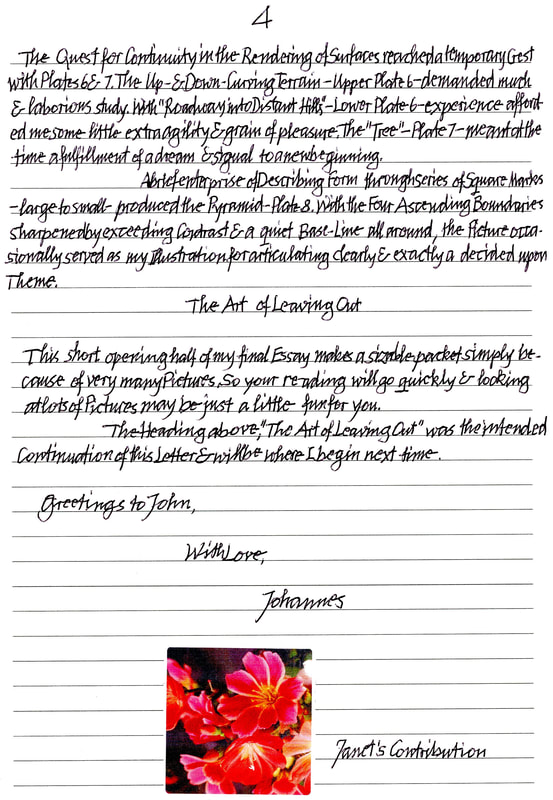 4
The Quest for Continuity in the Rendering of Surfaces reached a temporary Crest
with Plates 6 & 7. The Up-&Down-Curving Terrain-Upper Plate 6-demanded much
& laborious study. With "Roadway into Distant Hills"-Lower Plate 6-experience afford-
ed me some little extra agility & grain of pleasure. The "Tree"-Plate 7-meant at the
time a fulfillment of a dream & signal to a new beginning.
A brief enterprise of Describing Form through series of Square Marks
-large to small- produced the Pyramid-Plate 8. With the Four Ascending Boundaries
sharpened by exceeding Contrast & a quiet Base-Line all around, the Picture occa-
sionally served as my Illustration for articulating clearly & exactly a decided upon
Theme.
The Art of Leaving Out
This short opening half of my final Essay makes a sizable packet simply be-
cause of very many Pictures. So your reading will go quickly & looking
at lots of Pictures may be just a little fun for you.
The Heading above, "The Art of Leaving Out" was the intended
Continuation of this Letter & will be where I begin next time.
Greetings to John,
With Love,
Johannes
Janet's Contribution